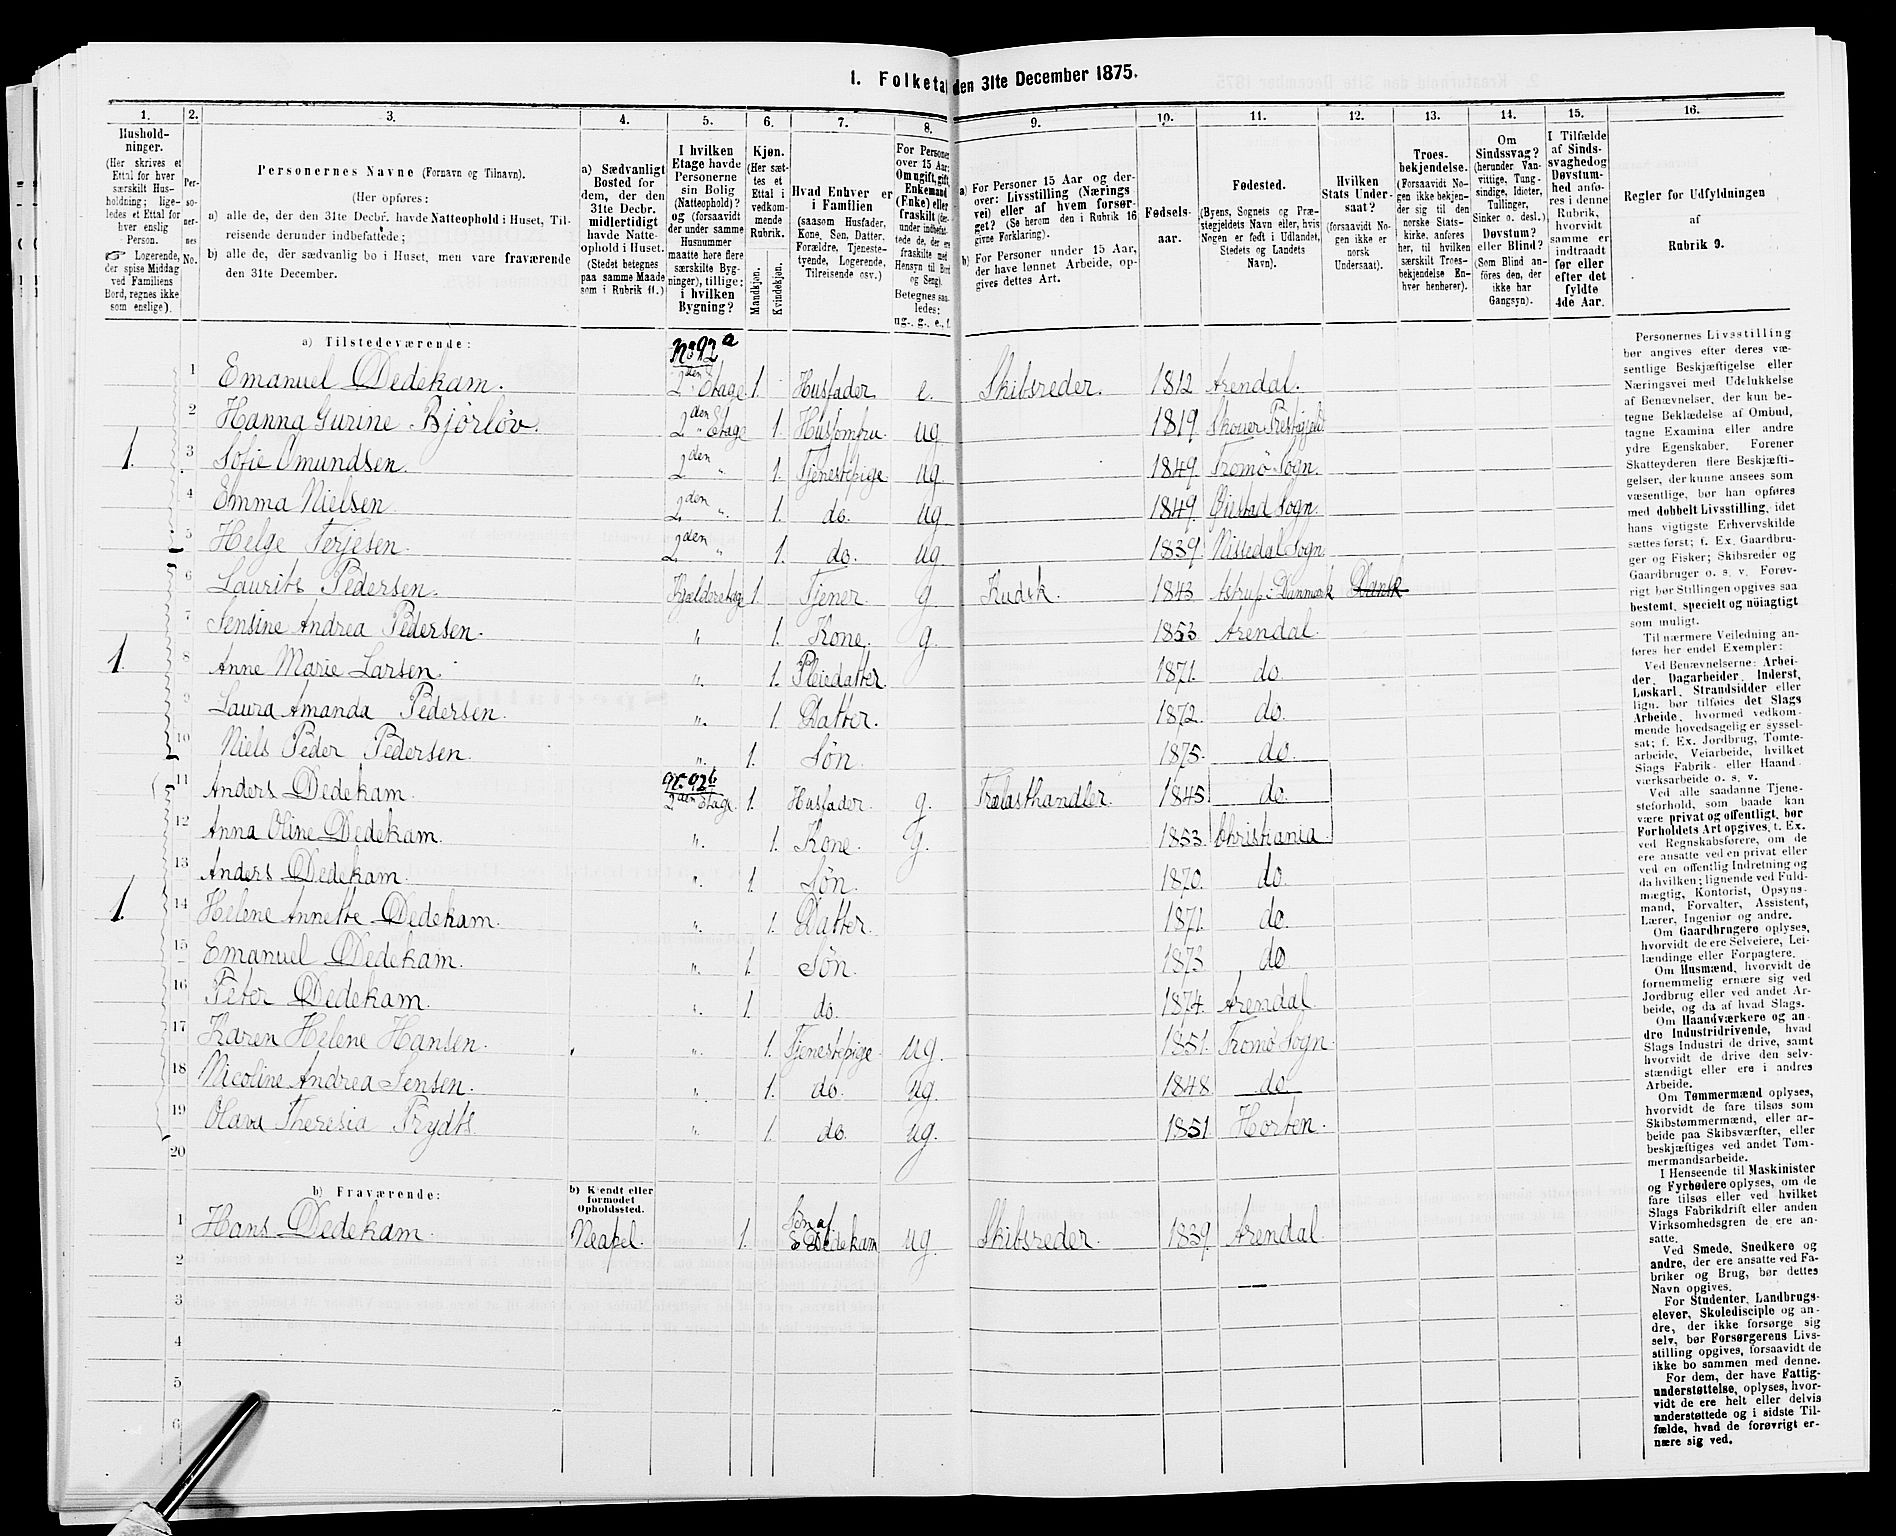 1. Folketal den 31te December 1875.
1. 2. 3. 4. 5. 6. 7. 8. 9. 10. 11. 12. 13. 14. 15. 16.
Hushold-
ninger.
(Her skrives et
Ettal for hver
særskilt Hus-
holdning; lige-
ledes et Ettal for
hver enslig
Person.
☞ Logerende,
der spise Middag
ved Familiens
Bord, regnes ikke
som enslige).
Per-
so-
ner-
nes
No.
Personernes Navne (Fornavn og Tilnavn).
(Her opføres:
a) alle de, der den 31te Decbr. havde Natteophold i Huset, Til-
reisende derunder indbefattede;
b) alle de, der sædvanlig bo i Huset, men vare fraværende
den 31te December.
a) Sædvanligt
Bosted for
dem, der den
31te Decbr.
midlertidigt
havde Natte-
ophold i Huset.
(Stedet betegnes
paa samme Maade
som i Rubrik 11.)
I hvilken
Etage havde
Personerne
sin Bolig
(Natteophold)?
og (forsaavidt
der under samme
Husnummer
maatte høre flere
særskilte Byg-
ninger), tillige:
i hvilken
Bygning?
Kjøn.
(Her sæt-
tes et
Ettal i
vedkom-
mende
Rubrik.
Mandkjøn.
Kvindekjøn.
Hvad Enhver er
i Familien
(saasom Husfader,
Kone, Søn, Datter,
Forældre, Tjeneste-
tyende, Logerende,
Tilreisende osv.)
For Personer
over 15 Aar:
Om ugift, gift,
Enkemand
(Enke) eller
fraskilt (der-
under indbefat-
tede de, der ere
fraskilte med
Hensyn til Bord
og Seng).
Betegnes saa-
ledes:
ug., g., e., f.
a) For Personer 15 Aar og der-
over: Livsstilling (Nærings-
vei) eller af hvem forsør-
get? (Se herom den i Rubrik 16
givne Forklaring).
b) For Personer under 15 Aar,
der have lønnet Arbeide, op-
gives dettes Art.
Fødsels-
aar.
Fødested.
(Byens, Sognets og Præ-
stegjeldets Navn eller, hvis
Nogen er født i Udlandet,
Stedets og Landets
Navn).
Hvilken
Stats Under-
saat?
(forsaavidt No-
gen ikke er
norsk
Undersaat).
Troes-
bekjendelse.
(Forsaavidt No-
gen ikke bekjen-
der sig til den
norske Stats-
kirke, anføres
her, til hvilken
særskilt Troes-
bekjendelse En-
hver henhører).
Om
Sindssvag?
(herunder Van-
vittige, Tung-
sindige, Idioter,
Tullinger,
Sinker o. desl.).
Døvstum?
eller Blind?
(Som Blind an-
føres den, der
ikke har
Gangsyn).
I Tilfælde
af Sinds-
svaghed og
Døvstum-
hed anfø-
res i denne
Rubrik,
hvorvidt
samme er
indtraadt
før eller
efter det
fyldte
4de Aar.
Regler for Udfyldningen
af
Rubrik 9.
a) Tilstedeværende:
No 92 a
1 Emanuel Dedekam. 2den Etage 1. Husfader e. Skibsreder. 1812 Arendal.
2 Hanna Gurine Bjørløv. 2den " Etage 1. Husjomfru ug 1819 Præstegjeld
1. 3 Sofie Omundsen. 2den " 1. Tjenestepige ug. 1849. Tromø Sogn.
4 Emma Nielsen 2den ". 1. do. ug 1849. Øiestad Sogn.
5 Helge Terjesen. 2den " 1. do. ug. 1839. Nissedal Sogn
6 Laurits Pedersen. Kjælderetage 1. Tjener. g Kudsk. 1843 Astrup i Danmark Dansk
7 Jensine Andrea Pedersen. " 1. Kone. g. 1853 Arendal.
1. 8 Anne Marie Larsen. ". 1. Pleiedatter 1871. do
9 Laura Amanda Pedersen. ". 1. Datter. 1872. do.
10 Niels Peder Pedersen. ". 1. Søn 1875. do.
No. 92 b
11 Anders Dedekam. 2den Etage. 1. Husfader. g. Trælasthandler. 1845. do.
12 Anna Oline Dedekam. ". 1. Kone. g. 1853. Christiania.
13 Anders Dedekam. ". 1. Søn. 1870. do.
1. 14 Helene Annette Dedekam. ". 1. Datter. 1871. do.
15 Emanuel Dedekam. ". 1. Søn. 1873 do
16 Peter Dedekam. ". 1. do. 1874. Arendal.
17 Karen Helene Hansen. ". 1. Tjenestepige. ug. 1851. Tromø Sogn.
18 Nicoline Andrea Jensen. ". 1. do. ug. 1848 do
19 Olava Theresia Frydts. " 1. do. ug. 1851 Horten.
20
b) Fraværende:
b) Kjendt eller
formodet
Opholdssted.
1 Hans Dedekam. Neapel. 1. Søn af E. Dedekam ug Skibsreder. 1839. Arendal
2
3
4
5
6
Personernes Livsstilling
bør angives efter deres væ-
sentlige Beskjæftigelse eller
Næringsvei med Udelukkelse
af Benævnelser, der kun be-
tegne Beklædelse af Ombud,
tagne Examina eller andre
ydre Egenskaber. Forener
Skatteyderen flere Beskjæfti-
gelser, der kunne ansees som
væsentlige, bør han opføres
med dobbelt Livsstilling, idet
hans vigtigste Erhvervskilde
sættes først; f. Ex. Gaardbru-
ger og Fisker; Skibsreder og
Gaardbruger o. s. v. Forøv-
rigt bør Stillingen opgives saa
bestemt, specielt og nøiagtigt
som muligt.
Til nærmere Veiledning an-
føres her endel Exempler:
Ved Benævnelserne: Arbei-
der, Dagarbeider, Inderst,
Løskarl, Strandsidder eller
lign. bør tilføies det Slags
Arbeide, hvormed vedkom-
mende hovedsagelig er syssel-
sat; f. Ex. Jordbrug, Tomte-
arbeide, Veiarbeide, hvilket
Slags Fabrik- eller Haand-
værksarbeide o. s. v.
Ved alle saadanne Tjene-
steforhold, som baade kan
være privat og offentligt, bør
Forholdets Art opgives, t. Ex.
ved Regnskabsførere, om de
ere ansatte ved en privat eller
ved en offentlig Indretning og
da hvilken; lignende ved Fuld-
mægtig, Kontorist, Opsyns-
mand, Forvalter, Assistent,
Lærer, Ingeniør og andre.
Om Gaardbrugere oplyses,
hvorvidt de ere Selveiere, Lei-
lændinge eller Forpagtere.
Om Husmænd, hvorvidt de
fornemmelig ernære sig ved
Jordbrug eller ved andet Ar-
beide, og da af hvad Slags.
Om Haandværkere og an-
dre Industridrivende, hvad
Slags Industri de drive, samt
hvorvidt de drive den selv-
stændigt eller ere i andres
Arbeide.
Om Tømmermænd oplyses,
hvorvidt de fare tilsøs som
Skibstømmermænd, eller ar-
beide paa Skibsværfter, eller
beskjæftiges ved andet Tøm-
mermandsarbeide.
I Henseende til Maskinister
og Fyrbødere oplyses, om de
fare tilsøs eller ved hvilket
Slags Fabrikdrift eller anden
Virksomhedsgren de ere an-
satte.
Ved Smede, Snedkere og
andre, der ere ansatte ved Fa-
briker og Brug, bør dettes
Navn opgives.
For Studenter, Landbrugs-
elever, Skoledisciple og an-
dre, der ikke forsørge sig
selv, bør Forsørgerens Livs-
stilling opgives, forsaavidt de
ikke bo sammen med denne.
For dem, der have Fattig-
understøttelse, oplyses, hvor-
vidt de ere helt eller delvis
understøttede og i sidste Til-
fælde, hvad de forøvrigt er-
nære sig ved.